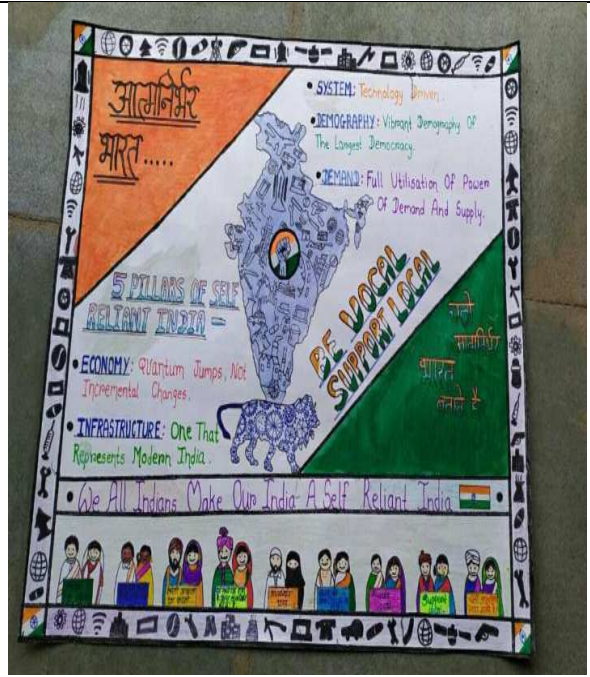 आत्मनिर्भर
भारत.....
• SYSTEM: Technology Driven.
• DEMOGRAPHY: Vibrant Demography Of
The Largest Democracy.
• DEMAND: Full Utilisation Of Power
Of Demand And Supply.
5 PILLARS OF SELF
RELIANT INDIA –
• ECONOMY: Quantum Jumps, Not
Incremental Changes.
• INFRASTRUCTURE: One That
Represents Modern India.
BE VOCAL
SUPPORT LOCAL
चलो
भारत
बनाते है
• We All Indians Make Our India- A Self Reliant India •
Support